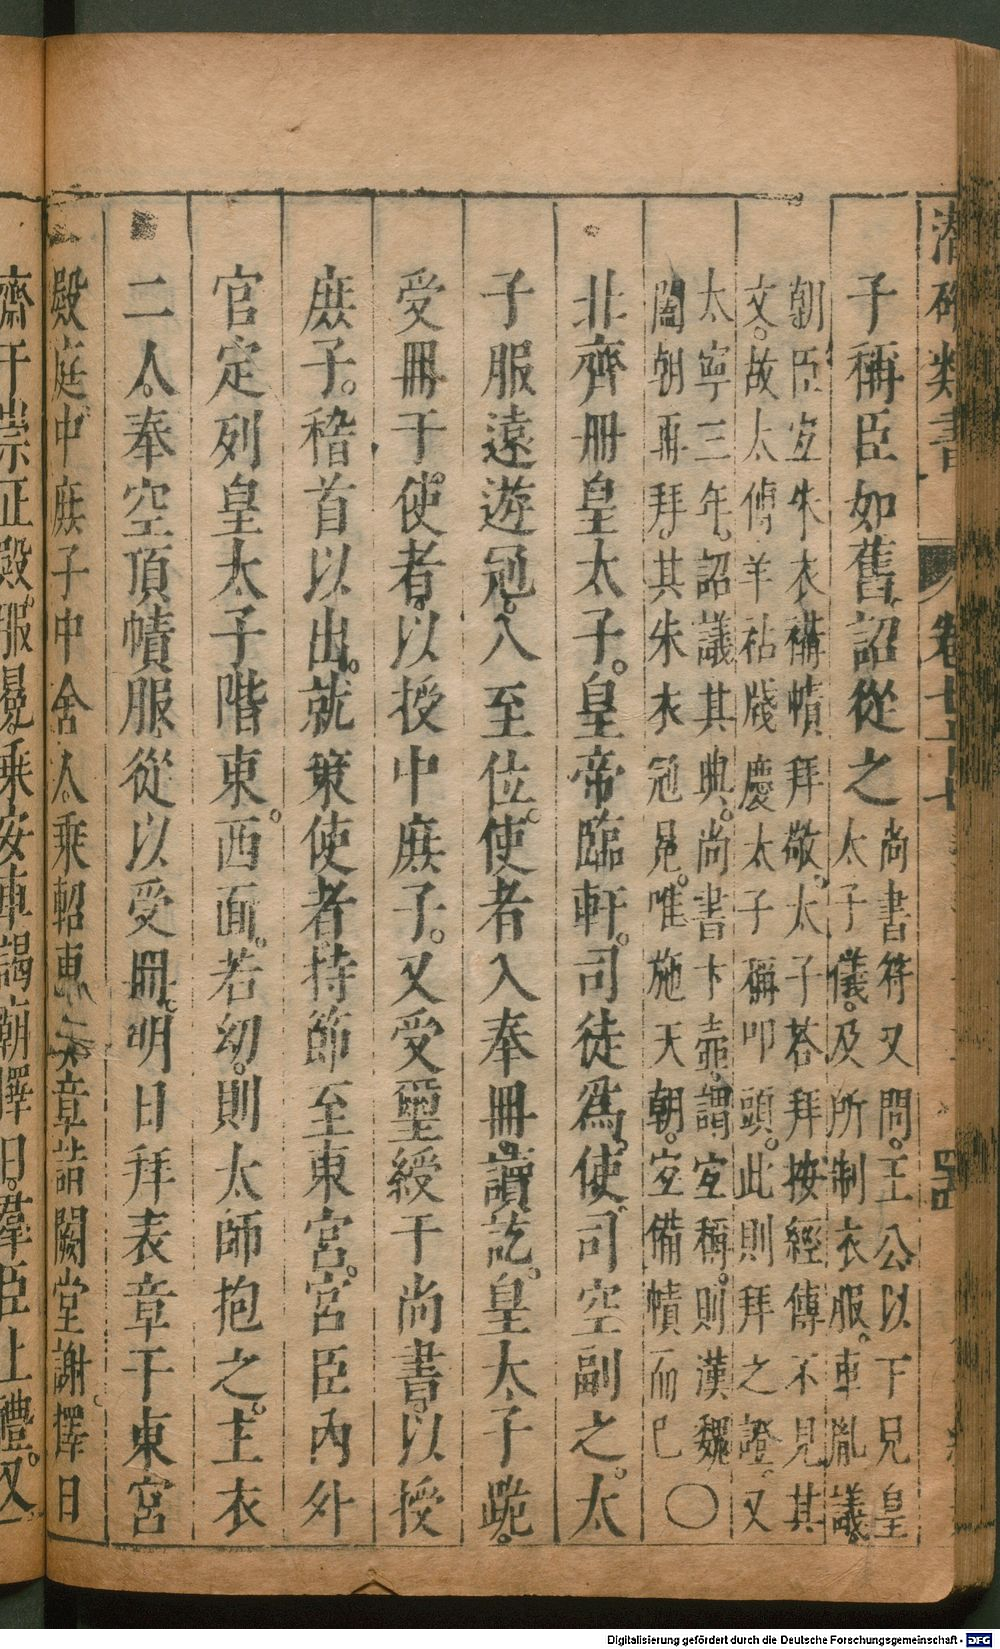 潛確類書 卷七十七
子稱臣如舊詔從之
尚書符又問王公以下見皇
太子儀及所制衣服車胤議
朝臣宜朱衣褠幘拜敬太子荅拜按經傳不見其
文故太傅羊祜牋慶太子稱叩頭此則拜之證又
太寧三年詔議其典尚書卞壺謂宜稱則漢魏
闔朝再拜其朱衣冠冕唯施天朝宜備幘而已〇
北齊冊皇太子皇帝臨軒司徒爲使司空副之太
子服遠遊冠入至位使者入奉冊讀訖皇太子跪
受冊于使者以授中庶子又受璽綬于尚書以授
庶子稽首以出就䇿使者持節至東宮宮臣內外
官定列皇太子階東西面若幼則太師抱之主衣
二人奉空頂幘服從以受冊明日拜表章于東宮
殿庭中庶子中舍人乘軺車　章詣闕堂謝擇日
齋于崇正殿服冕乘安車謁廟擇日羣臣上禮又
Digitalisierung gefördert durch die Deutsche Forschungsgemeinschaft - DFG